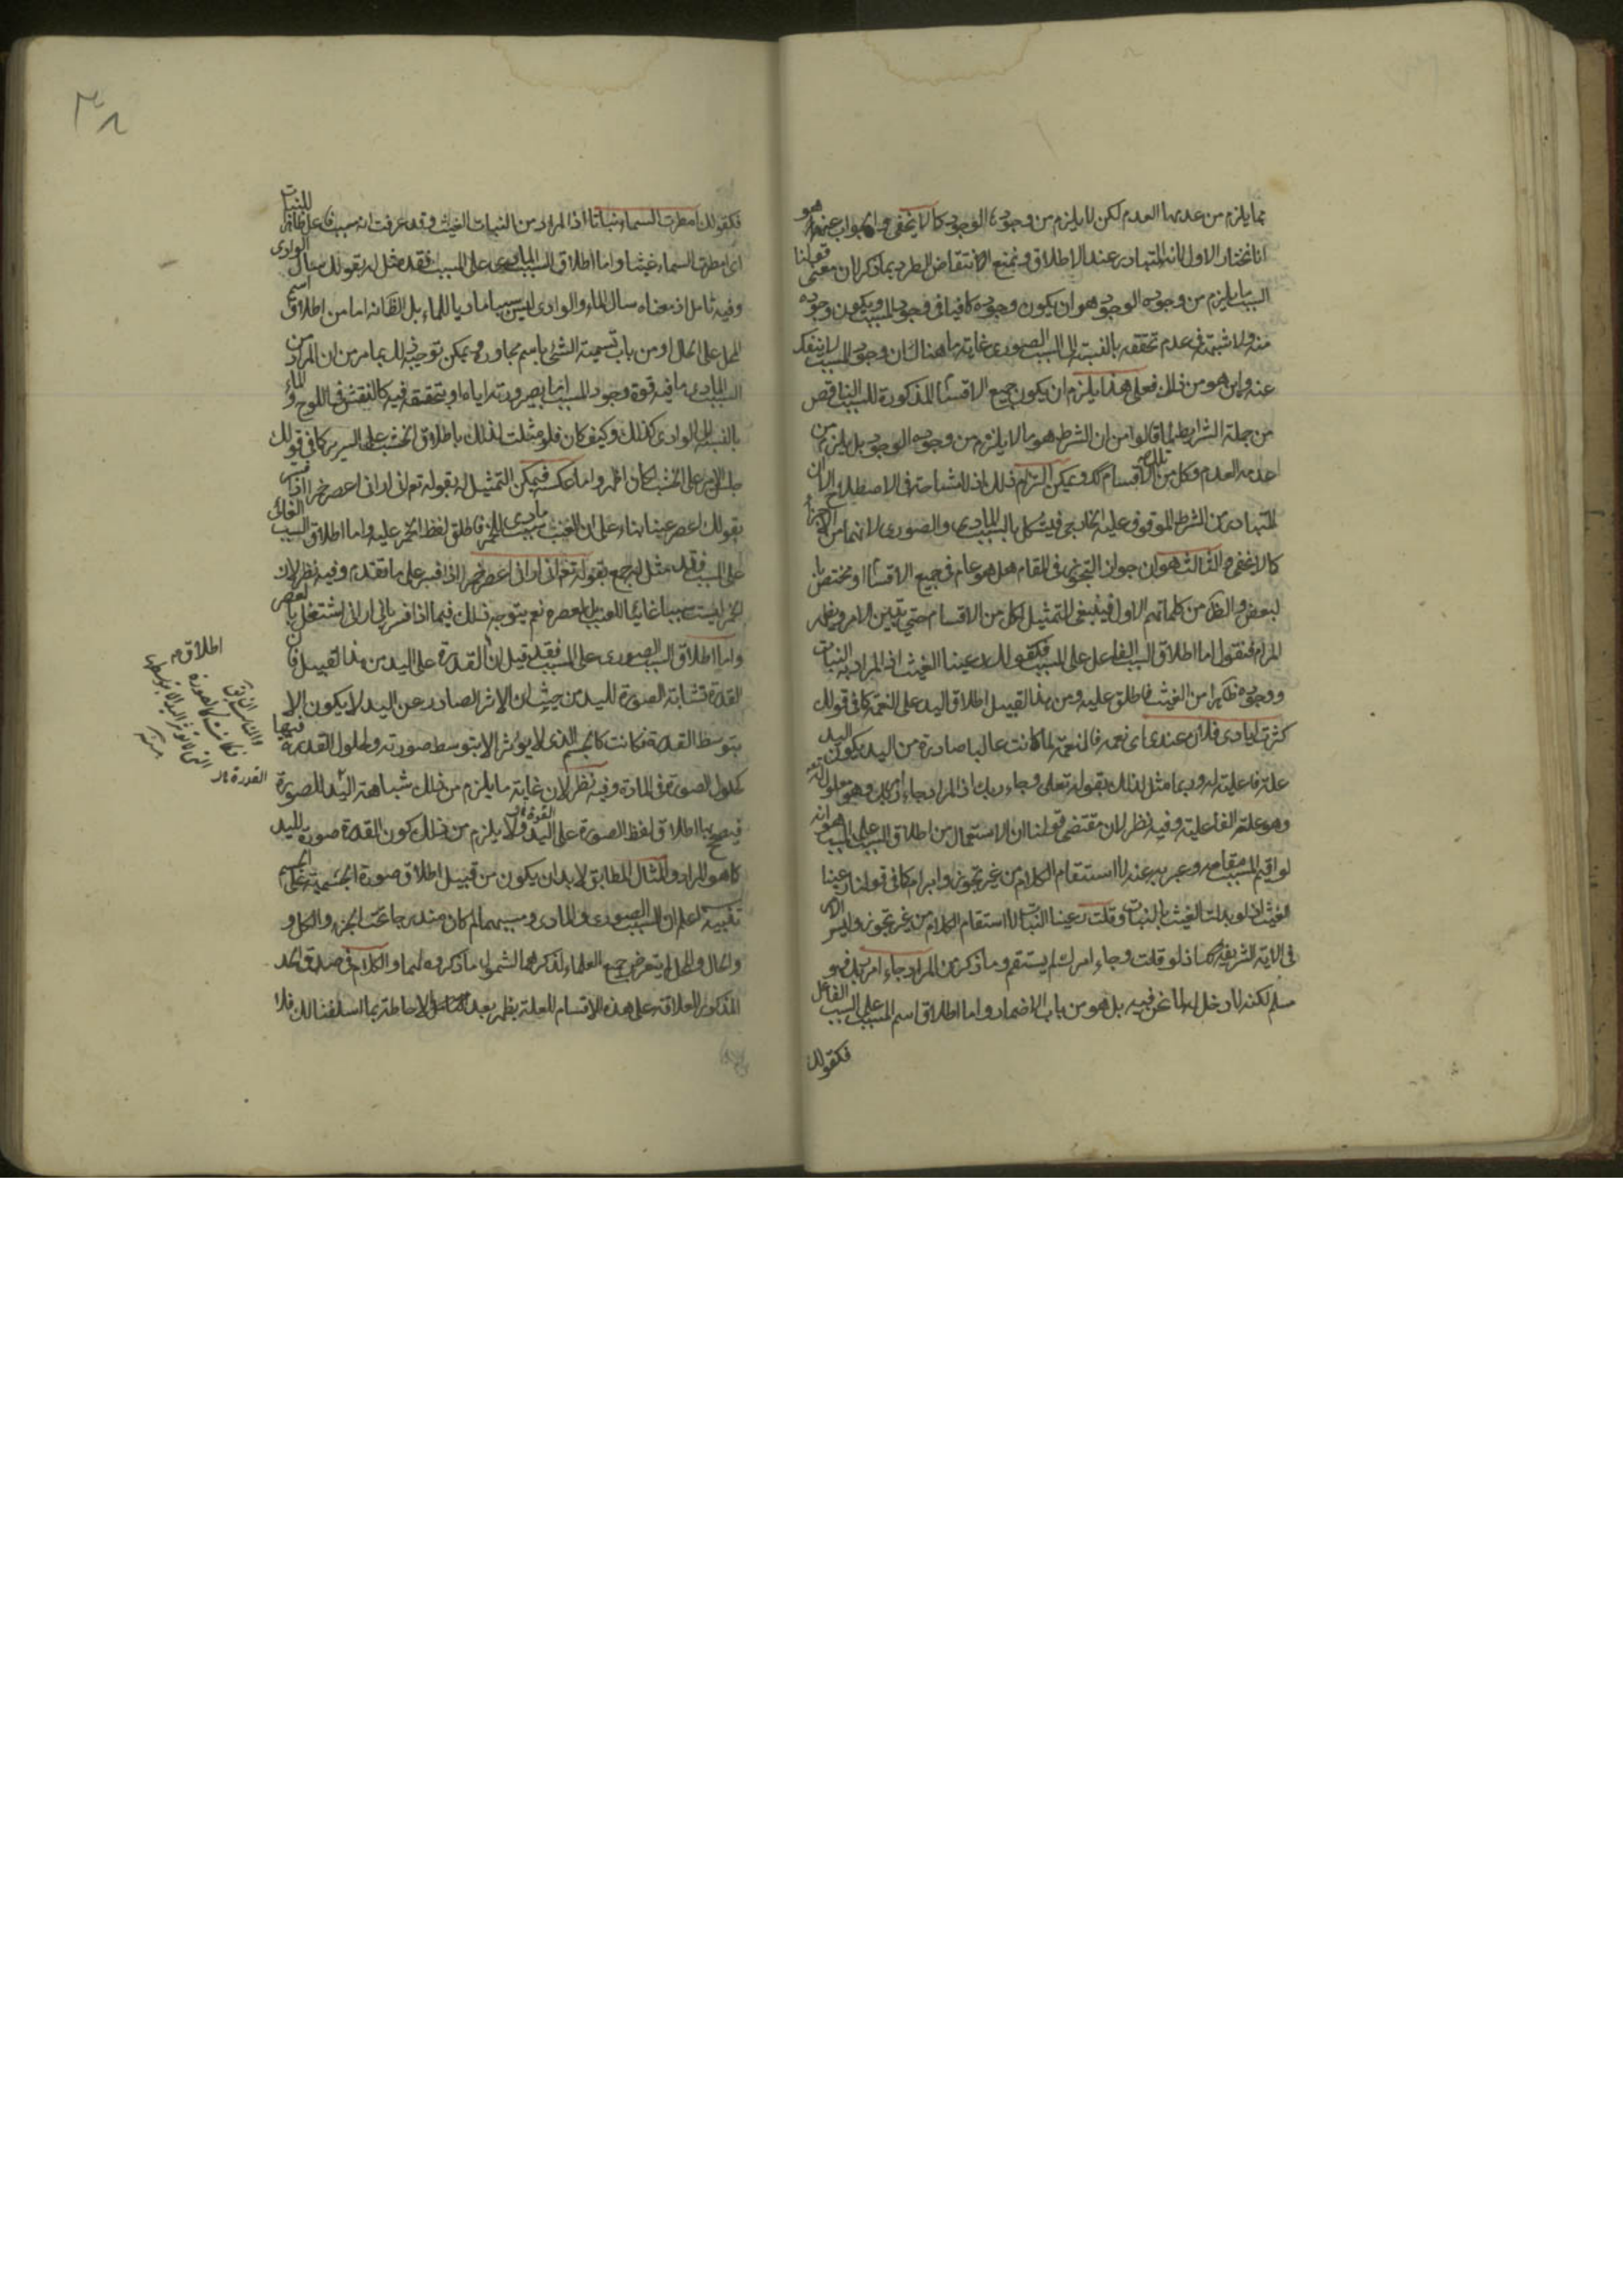 مما يلزم من عدمها العدم لكن لا يلزم من وجودها الوجود كما لا يخفى والجواب عنه هو
انا نختار الاول لانه المتبادر عند الاطلاق ونمنع الانتقاض المطرد بما ذكر لان معنى قولنا
السبب ما يلزم من وجوده الوجود هو ان يكون وجوده كافيا في وجود المسبب ويكون وجوده
منه ولا شبهة في عدم تحققه بالنسبة الى السبب الصوري غاية ما هناك ان وجود المسبب لا ينفك
عنه واين هو من ذلك فعلى هذا يلزم ان يكون جميع الاقسام المذكورة للسبب الناقص
من جملة الشرايط لما قالوا من ان الشرط هو ما لا يلزم من وجوده الوجود بل يلزم من
عدمه العدم وكل من تلك الاقسام كك ويمكن التزام ذلك اذ لا مشاحة في الاصطلاح الا ان
المتبادر من الشرط الموقوف عليه الخارجي فيشكل بالسبب المادي والصوري لانهما من الاجزاء
كما لا يخفى والثالث هو ان جواز التجوز في المقام هل هو عام في جميع الاقسام او مختص
لبعض والظ من كلماتهم الاول فينبغي التمثيل لكل من الاقسام حتى يتبين الامر ويظهر
المرام فنقول اما اطلاق السبب الفاعل على المسبب فكقولك رعينا الغيث اذ المراد به النبات
ووجوده ظهر من الغيث فاطلق عليه ومن هذا القبيل اطلاق اليد على النعمة كما في قولك
كثرت ايادي فلان عندي اي نعمه فالنعمة لما كانت غالبا صادرة من اليد يكون اليد
علة فاعلية له وربما مثل لذلك بقوله تعالى وجاء ربك اذ المراد جاء امر ربك وهو معلوله تع
وهو علته الفاعلية وفيه نظر لان مقتضى قولنا ان الاستعمال من اطلاق السبب على المسبب هو انه
لو اقيم المسبب مقامه وعبر به عنه لاستقام الكلام من غير تجوز وابرام كما في قولنا رعينا
الغيث اذ لو بدلت الغيث بالنبات وقلت رعينا النبات لاستقام الكلام من غير تجوز وليس الامر
في الآية الشريفة كك اذ لو قلت وجاء امرك لم يستقم وما ذكر من المراد جاء امر ربك فهو
مسلم لكنه لا دخل له لما نحن فيه بل هو من باب الاضمار واما اطلاق اسم المسبب على السبب الفاعل
فكقولك
فكقولك امطرت السماء نباتا اذ المراد من النبات الغيث وقد عرفت انه سبب فاعل للنبات
اي امطرت السماء غيثا واما اطلاق السبب المادي على المسبب فقد مثل له بقولك سال الوادي
وفيه تامل اذ معناه سال الماء والوادي ليس سببا ماديا للماء بل الظ انه اما من اطلاق اسم
المحل على الحال او من باب تسمية الشئ باسم مجاوره ويمكن توجيه ذلك بما مر من ان المراد من
السبب المادي ما فيه قوة وجود المسبب اما بصيرورته اياه او بتحققه فيه كالنقش في اللوح والماء
بالنسبة الى الوادي كذلك وكيف كان فلو مثلت لذلك باطلاق الخشب على السرير كما في قولك
جلس الامير على الخشب لكان اظهر واما عكسه فيمكن التمثيل له بقوله تع اني اراني اعصر خمرا اذا فسر
بقولك اعصر عنبا بناء على ان العنب سبب مادي للخمر فاطلق لفظ الخمر عليه واما اطلاق السبب الغائي
على المسبب فقد مثل له جمع بقوله تع اني اراني اعصر خمرا اذا فسر على ما تقدم وفيه نظر لان
الخمر ليست سببا غائيا للعنب بل لعصره نعم يتوجه ذلك فيما اذا فسر باني اراني اشتغل بالعصر
واما اطلاق السبب الصوري على المسبب فقد قيل ان القدرة على اليد من هذا القبيل فان
القدرة تشابه الصورة لليد من حيث ان الاثر الصادر عن اليد لا يكون الا
بتوسط القدرة فكانت كالجسم الذي لا يؤثر الا بتوسط صورته ولحلول القدرة فيها
كحلول الصورة في المادة وفيه نظر لان غاية ما يلزم من ذلك شباهة اليد للصورة
فيصح بها اطلاق لفظ الصورة على اليد ولا يلزم من ذلك كون القدرة صورة لليد
كما هو المراد والمثال المطابق لا بد ان يكون من قبيل اطلاق صورة الجسمية على الجسم
تنبيه اعلم ان السبب الصوري والمادي ومسببهما لما كان مندرجا تحت الجزء والكل و
والحال والمحل لم يتعرض جمع العلماء لذكرهما لشمول ما ذكروه لهما والكلام في صدق الحد
المذكور للعلاقة على هذه الاقسام للعلة يظهر بعد التامل والاحاطة بما اسلفنا لك فلا
اطلاق م